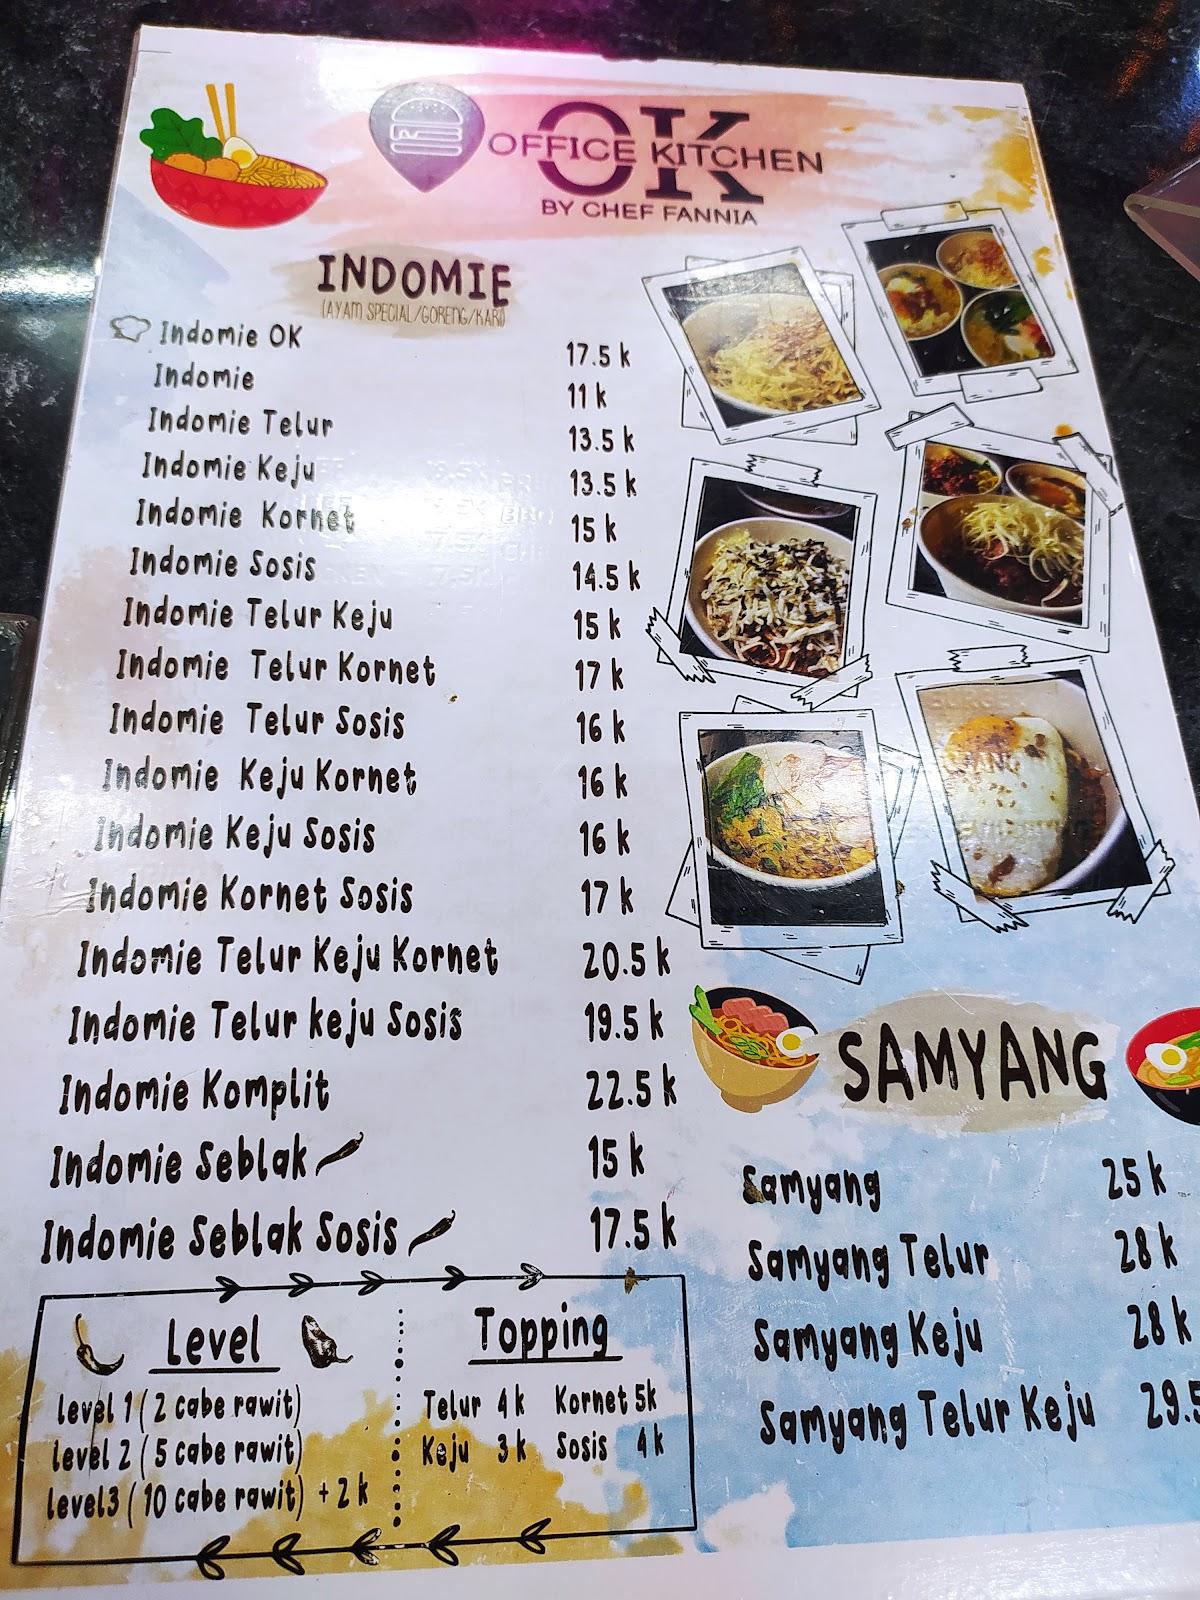 OK
OFFICE KITCHEN
BY CHEF FANNIA
INDOMIE
(AYAM SPECIAL/GORENG/KARI)
Indomie OK 17.5 k
Indomie 11 k
Indomie Telur 13.5 k
Indomie Keju 13.5 k
Indomie Kornet 15 k
Indomie Sosis 14.5 k
Indomie Telur Keju 15 k
Indomie Telur Kornet 17 k
Indomie Telur Sosis 16 k
Indomie Keju Kornet 16 k
Indomie Keju Sosis 16 k
Indomie Kornet Sosis 17 k
Indomie Telur Keju Kornet 20.5 k
Indomie Telur keju Sosis 19.5 k
Indomie Komplit 22.5 k
Indomie Seblak 15 k
Indomie Seblak Sosis 17.5 k
Level
level 1 ( 2 cabe rawit)
level 2 ( 5 cabe rawit)
level3 ( 10 cabe rawit) + 2 k
Topping
Telur 4 k Kornet 5k
Keju 3 k Sosis 4 k
SAMYANG
Samyang 25 k
Samyang Telur 28 k
Samyang Keju 28 k
Samyang Telur Keju 29.5